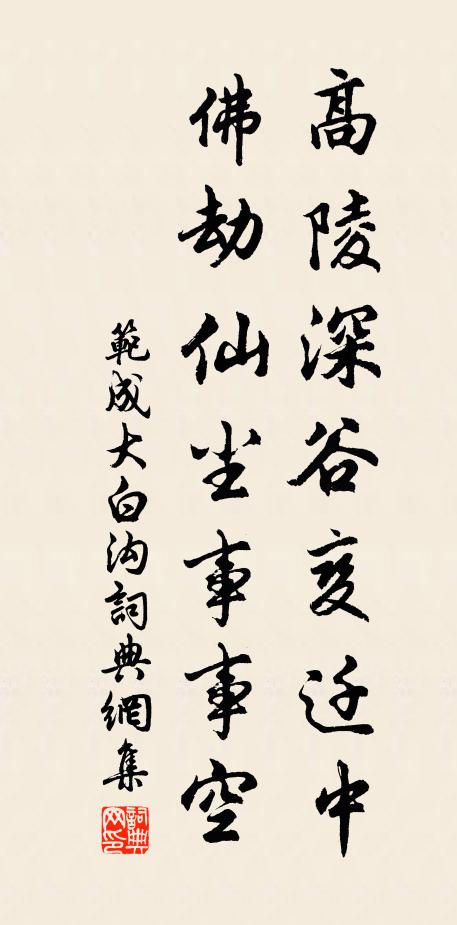 高陵深谷变迁中
佛劫仙尘事事空
範成大白沟詞典網集
詞典网印